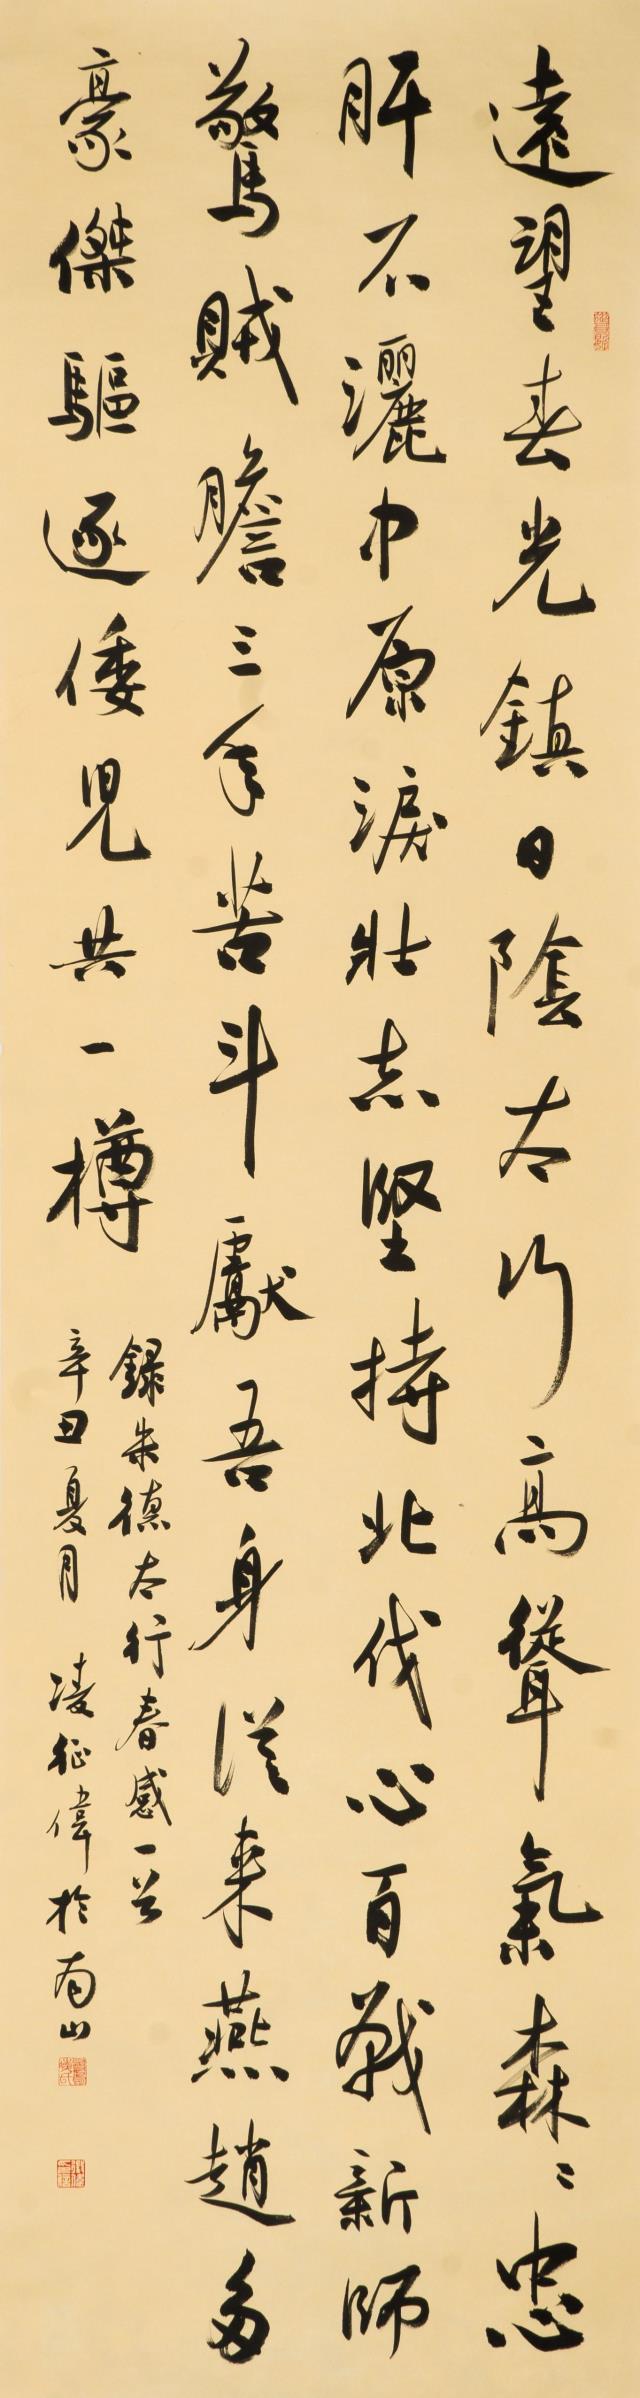 遠望春光鎮日陰太行高聳氣森〻忠
肝不灑中原淚壯志堅持北伐心百戰新師
驚賊膽三年苦斗獻吾身從来燕趙多
豪傑驅逐倭児共一樽
錄朱德太行春感一首
辛丑夏月 凌征偉於南山